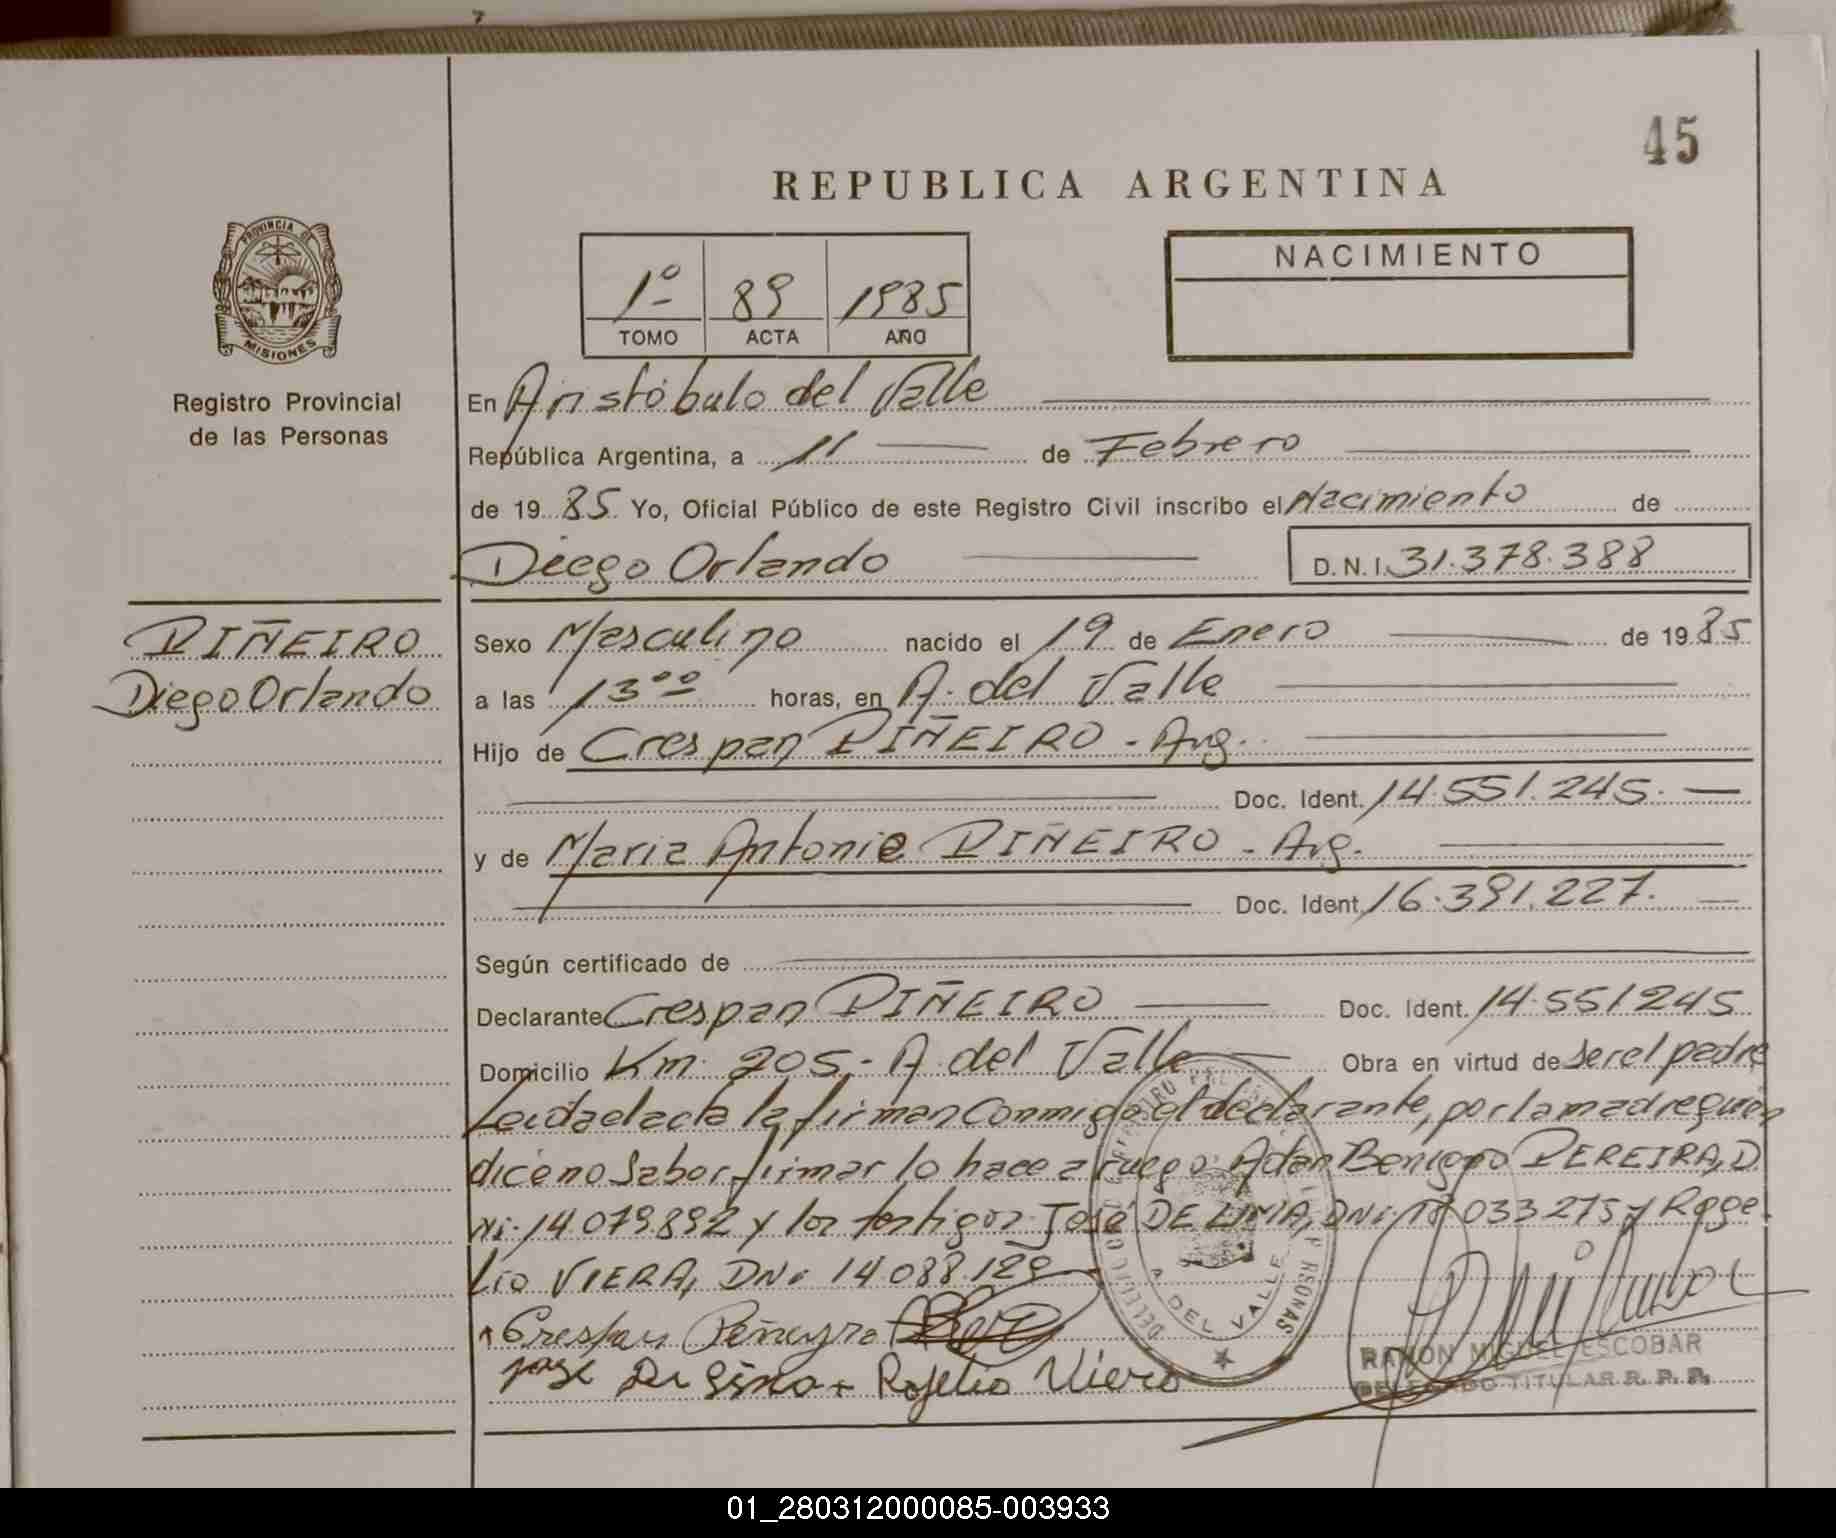 45
REPUBLICA ARGENTINA
PROVINCIA DE
MISIONES
Registro Provincial
de las Personas
1º 89 1985
TOMO ACTA AÑO
NACIMIENTO
En Aristóbulo del Valle
República Argentina, a 11 de Febrero
de 1985 Yo, Oficial Público de este Registro Civil inscribo el Nacimiento de
Diego Orlando D.N.I. 31.378.388
PIÑEIRO
Diego Orlando
Sexo Masculino nacido el 19 de Enero de 1985
a las 13ºº horas, en A. del Valle
Hijo de Crespan PIÑEIRO - Arg.
Doc. Ident. 14.551.245.
y de Maria Antonia PIÑEIRO - Arg.
Doc. Ident. 16.391.227.
Según certificado de
Declarante Crespan PIÑEIRO Doc. Ident. 14.551245
Domicilio Km. 205 - A. del Valle Obra en virtud de ser el padre
Leida el acta la firman conmigo el declarante, por la madre quien
dice no saber firmar lo hace a ruego: Adán Benigno PEREIRA, D.
Ni. 14.079.892 y los testigos: José DE LIMA, DNi. 033.275 y Roge
lio VIERA, DNi 14.088.129
Crespan Piñeyro
jose De Lima Rojelio Viera
A DEL VALLE
RAMON MIGUEL ESCOBAR
DELEGADO TITULAR R. P. P.
01_280312000085-003933